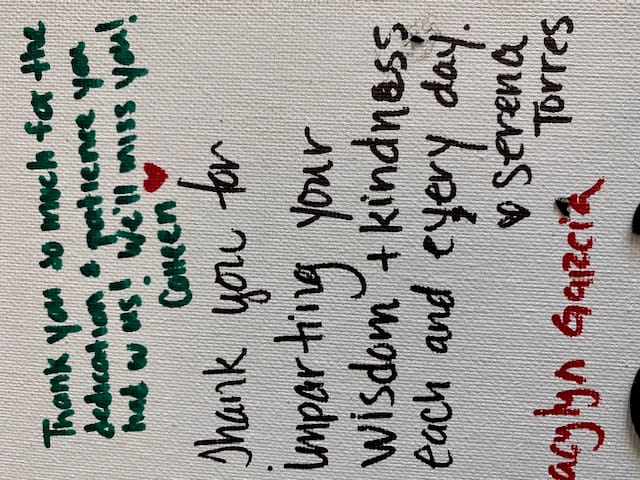 Thank you so much for the
dedication & patience you
had w us! We'll miss you!
Colleen
Thank you for
imparting your
wisdom + kindness
each and every day.
Serena
Torres
acylyn Garcia